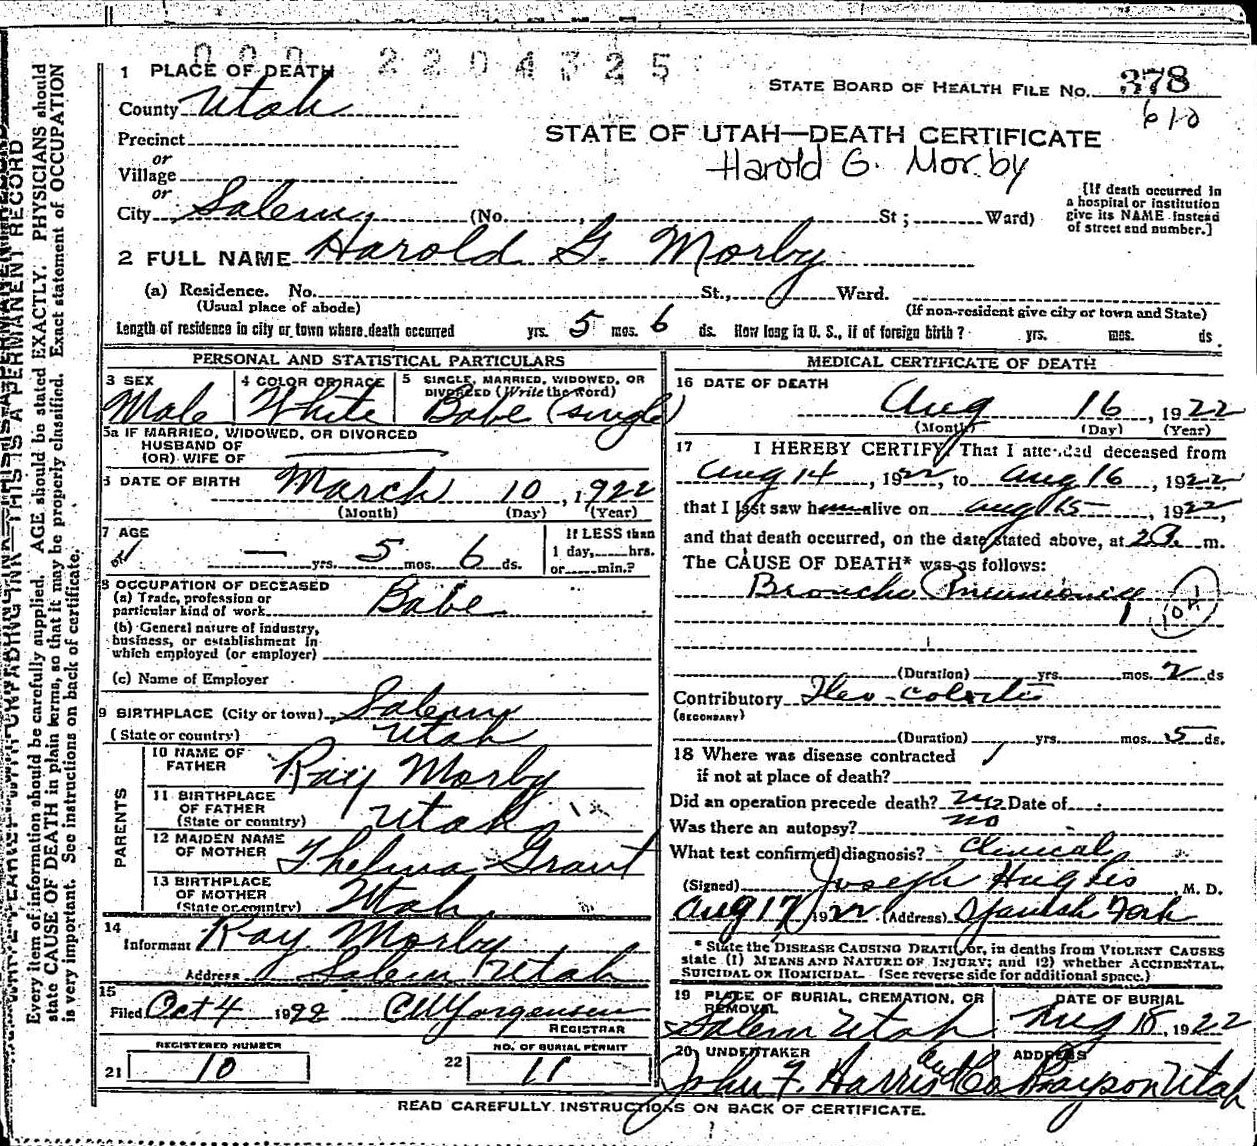 000 2204325
1 PLACE OF DEATH
STATE BOARD OF HEALTH FILE No. 378
County Utah
610
Precinct
STATE OF UTAH—DEATH CERTIFICATE
or
Harold G. Morby
Village
or
City Salem (No. , St ; Ward)
[If death occurred in
a hospital or institution
give its NAME instead
of street end number.]
2 FULL NAME Harold G. Morby
(a) Residence. No. St., Ward.
(Usual place of abode) (If non-resident give city or town and State)
Length of residence in city or town where death occurred yrs. 5 mos. 6 ds. How long in U. S., if of foreign birth? yrs. mos. ds.
PERSONAL AND STATISTICAL PARTICULARS
3 SEX
Male
4 COLOR OR RACE
White
5 SINGLE, MARRIED, WIDOWED, OR
DIVORCED (Write the word)
Babe (single)
5a IF MARRIED, WIDOWED, OR DIVORCED
HUSBAND OF
(OR) WIFE OF
6 DATE OF BIRTH March 10, 1922
(Month) (Day) (Year)
7 AGE
— yrs. 5 mos. 6 ds.
If LESS than
1 day, hrs.
or min.?
8 OCCUPATION OF DECEASED
(a) Trade, profession or
particular kind of work Babe
(b) General nature of industry,
business, or establishment in
which employed (or employer)
(c) Name of Employer
9 BIRTHPLACE (City or town) Salem
(State or country) Utah
PARENTS
10 NAME OF
FATHER Ray Morby
11 BIRTHPLACE
OF FATHER
(State or country) Utah
12 MAIDEN NAME
OF MOTHER Thelma Grant
13 BIRTHPLACE
OF MOTHER
(State or country) Utah
14
Informant Ray Morby
Address Salem Utah
15
Filed Oct 4 1922 C W Jorgensen
REGISTRAR
REGISTERED NUMBER
21 10
NO. OF BURIAL PERMIT
22 11
MEDICAL CERTIFICATE OF DEATH
16 DATE OF DEATH
Aug 16, 1922
(Month) (Day) (Year)
17 I HEREBY CERTIFY, That I attended deceased from
Aug 14, 1922, to Aug 16, 1922
that I last saw him alive on Aug 15, 1922,
and that death occurred, on the date stated above, at 2 m.
The CAUSE OF DEATH* was as follows:
Broncho Pneumonia
(Duration) yrs. mos. 2 ds
Contributory Ileo-colitis
(SECONDARY)
(Duration) yrs. mos. 5 ds.
18 Where was disease contracted
if not at place of death?
Did an operation precede death? no Date of
Was there an autopsy? no
What test confirmed diagnosis? Clinical
(Signed) Joseph Hughes, M. D.
Aug 17, 1922 (Address) Spanish Fork
* State the DISEASE CAUSING DEATH, or, in deaths from VIOLENT CAUSES
state (1) MEANS AND NATURE OF INJURY; and (2) whether ACCIDENTAL,
SUICIDAL OR HOMICIDAL. (See reverse side for additional space.)
19 PLACE OF BURIAL, CREMATION, OR
REMOVAL
Salem Utah
DATE OF BURIAL
Aug 18, 1922
20 UNDERTAKER ADDRESS
John F. Harris and Co Payson Utah
READ CAREFULLY INSTRUCTIONS ON BACK OF CERTIFICATE.
WRITE PLAINLY WITH UNFADING INK—THIS IS A PERMANENT RECORD
Every item of information should be carefully supplied. AGE should be stated EXACTLY. PHYSICIANS should
state CAUSE OF DEATH in plain terms, so that it may be properly classified. Exact statement of OCCUPATION
is very important. See instructions on back of certificate.